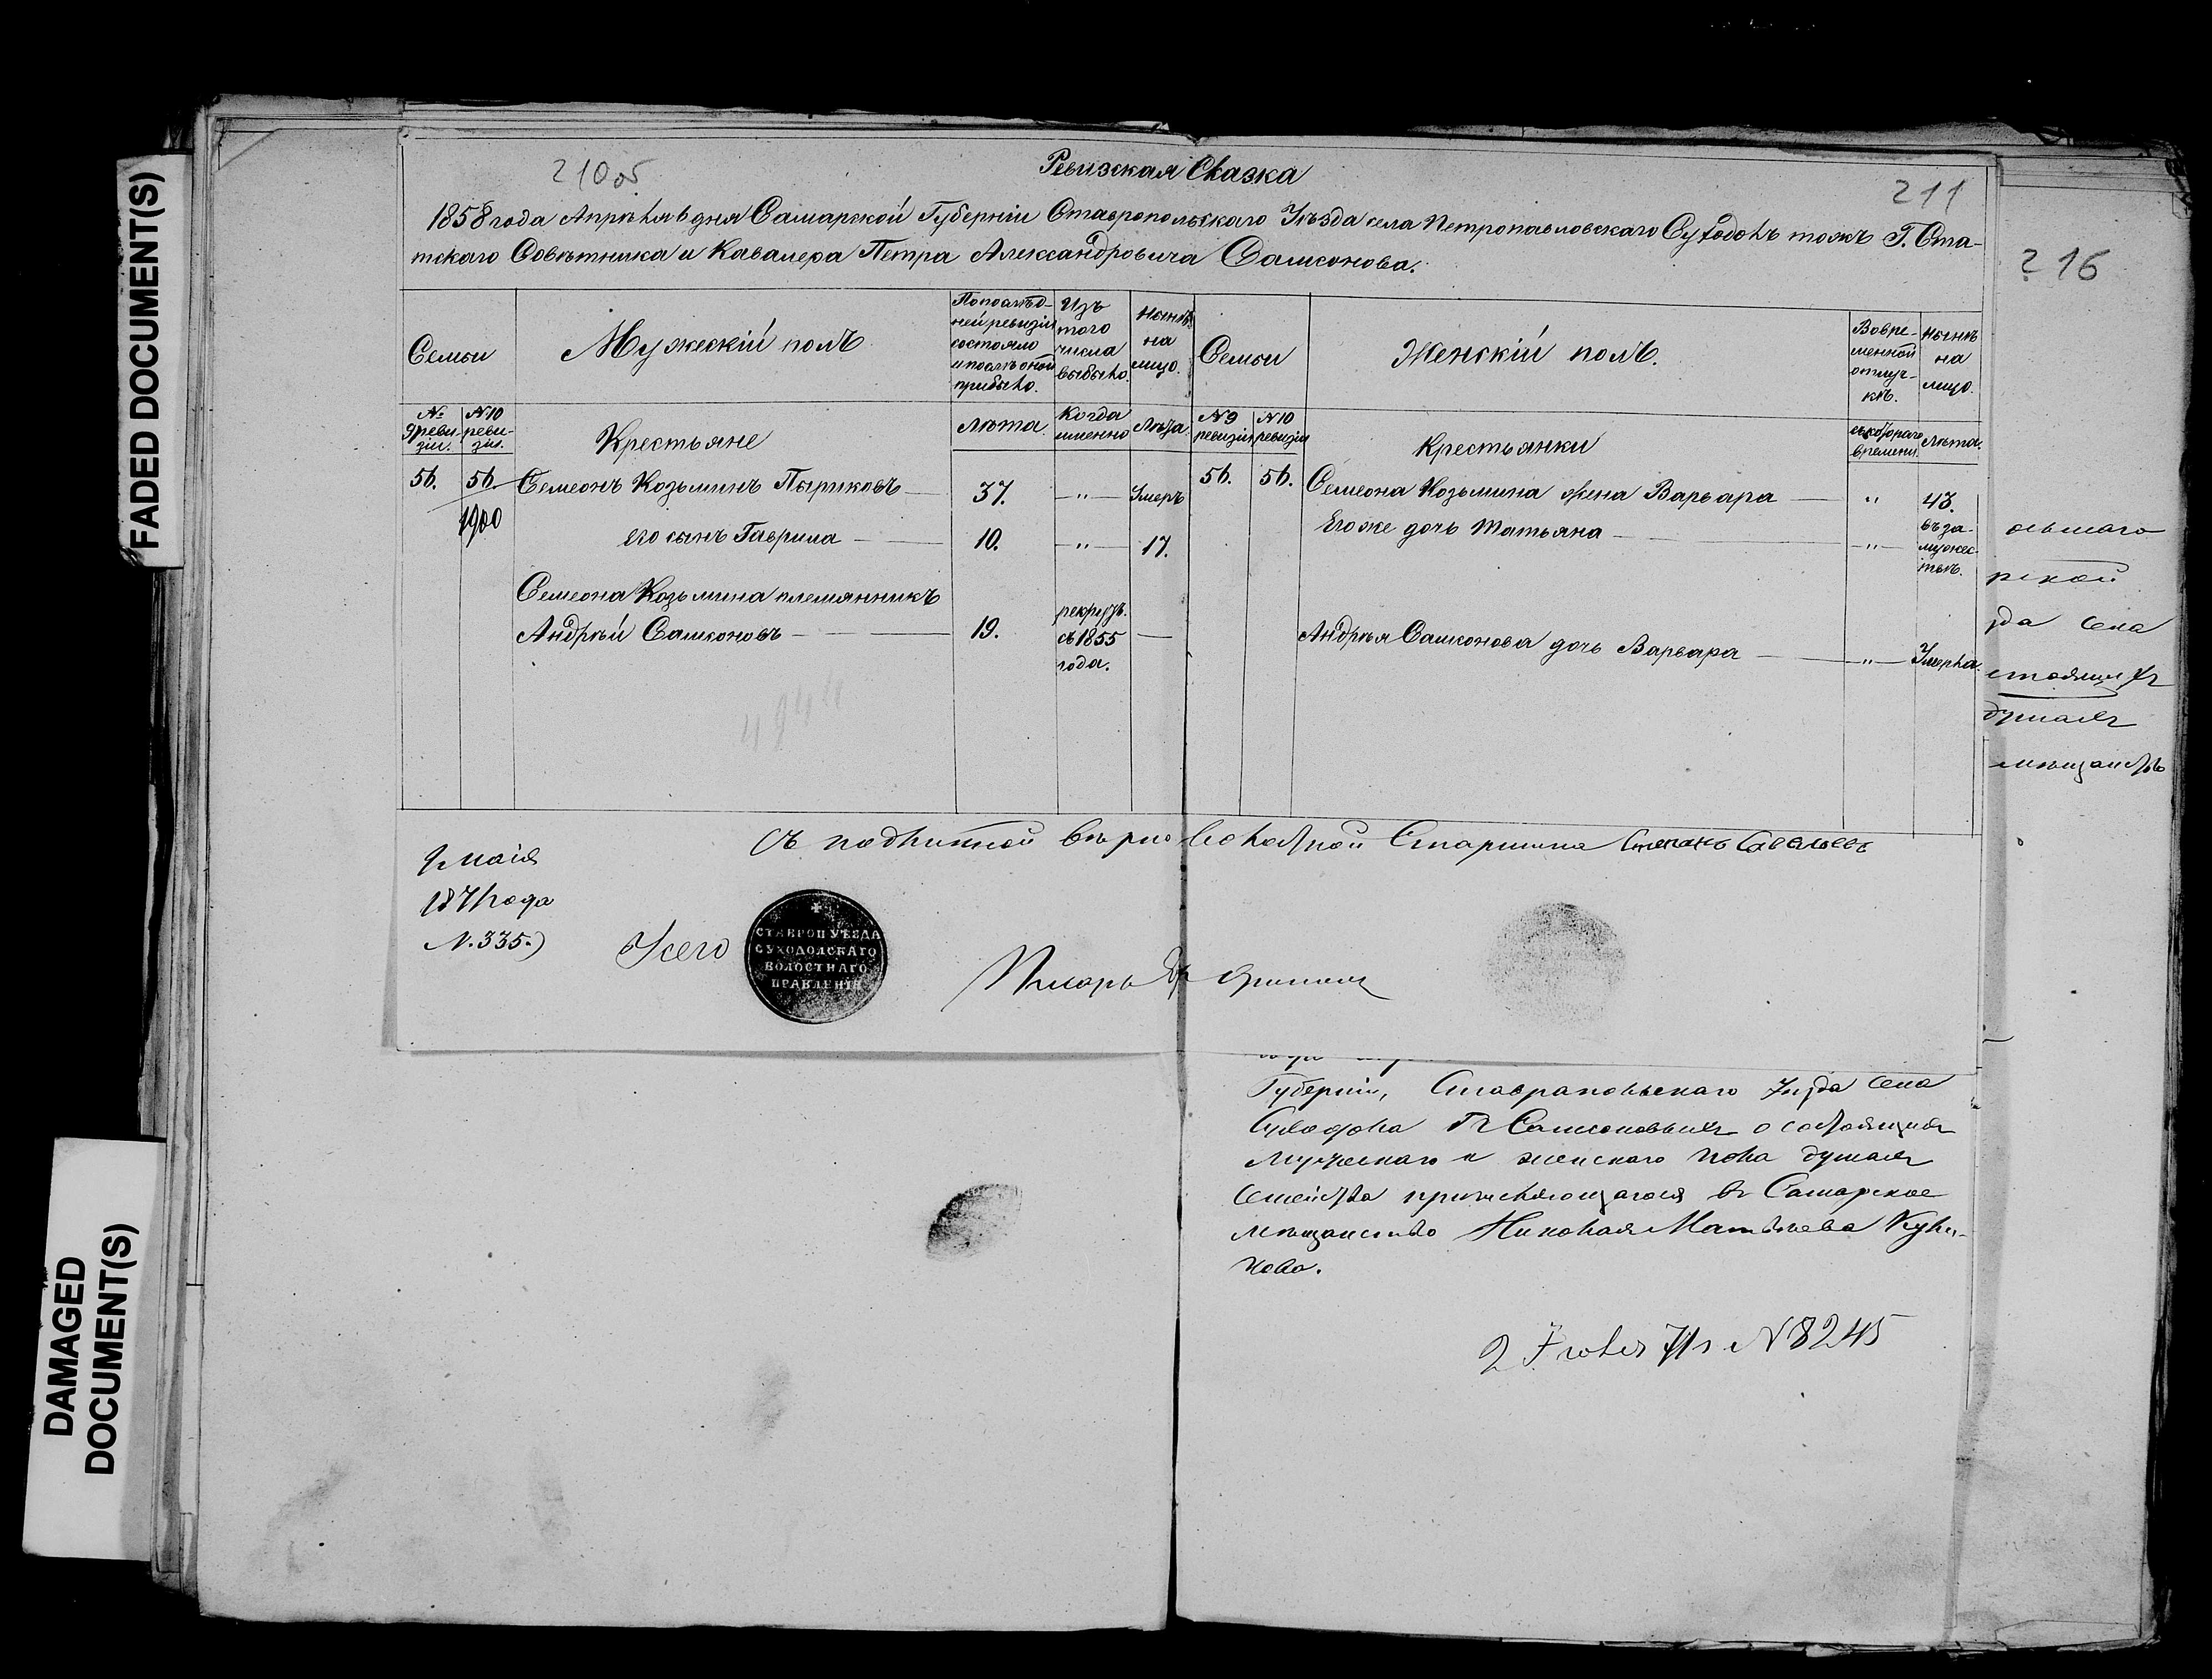 FADED DOCUMENT(S)
DAMAGED
DOCUMENT(S)
210об
211
216
Ревизская Сказка
1858 года Апрѣля 6 дня Самарской Губерніи Ставропольскаго Уѣзда села Петропавловскаго Суходолъ тожъ Г. Ста-
тскаго Совѣтника и Кавалера Петра Александровича Самсонова.
Семьи
Мужескій полъ
По послѣд-
ней ревизіи
состояло
и послѣ оной
прибыло.
Изъ
того
числа
выбыло.
Нынѣ
на
лицо.
Семьи
Женскій полъ.
Вовре-
менной
отлуч-
кѣ.
Нынѣ
на
лицо.
№
9 реви-
зіи.
№ 10
реви-
зіи.
Крестьяне
Лѣта
Когда
именно
Лѣта
№ 9
ревизіи
№ 10
ревизіи
Крестьянки
съ котораго
времени
Лѣта.
56.
56
1900
Семеонъ Козьминъ Пыриковъ
37.
"
Умеръ
56.
56.
Семеона Козьмина жена Варвара
"
43.
его сынъ Гаврила
10.
"
17.
Его же дочь Татьяна
"
въ за-
мужес-
твѣ.
Семеона Козьмина племянникъ
Андрѣй Самсоновъ
19.
рекрутъ.
съ 1855
года.
Андрѣя Самсонова дочь Варвара
"
Умерла.
Съ подлинной вѣрно Волостной Старшина Степанъ Савельевъ
маія
1871 года
N. 335.
СТАВРОП УѢЗДА
СУХОДОЛСКАГО
ВОЛОСТНАГО
ПРАВЛЕНІЯ
Писарь
рской
да села
стоящихъ
душахъ
мѣщанство
Губерніи, Ставропольскаго Уѣзда села
Суходола Гг Самсоновыхъ о состоящихъ
мужескаго и женскаго пола душахъ
семейства причисляющагося въ Самарское
мѣщанство Николая Матвѣева Кули-
кова.
N 8245